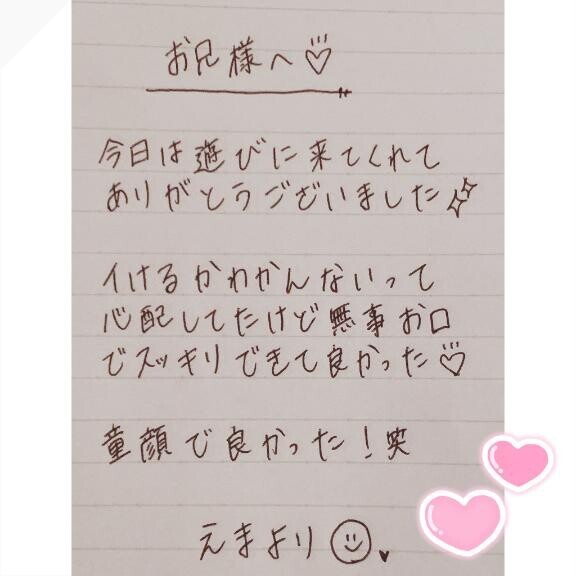 お兄様へ♡
今日は遊びに来てくれて
ありがとうございました✨
イけるかわかんないって
心配してたけど無事お口
でスッキリできて良かった♡
童顔で良かった！笑
えまより☺♥